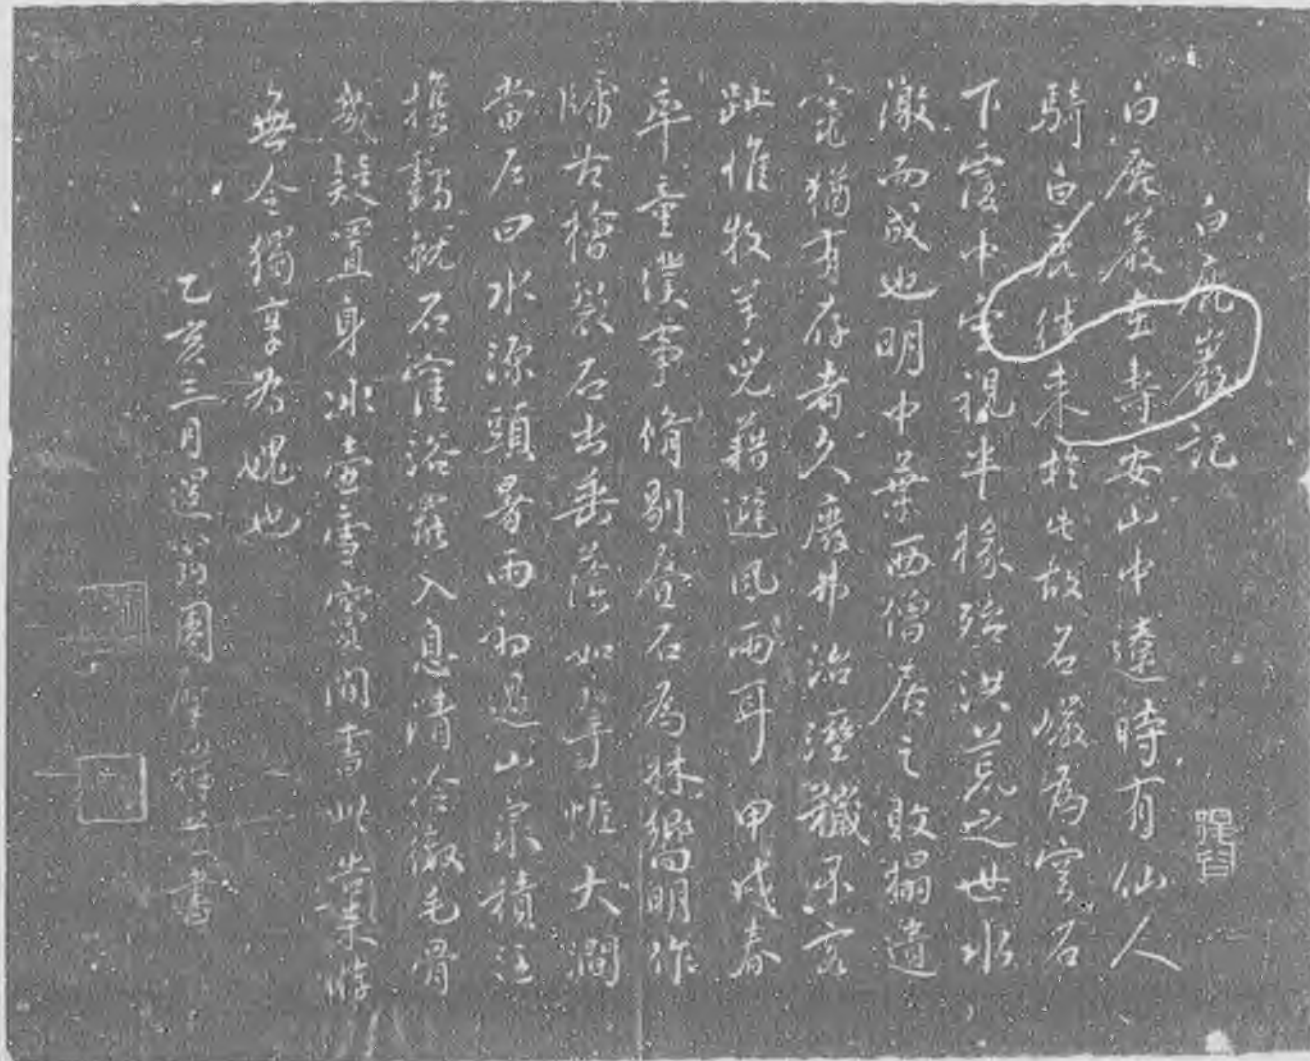 白鹿巖記
白鹿巖在壽安山中遼時有仙人
騎白鹿往來於此故名巖為穹石
下覆中空視半椽殆洪荒之世水
激而成也明中葉西僧居之敗榻遺
竈猶有存者久廢弗治溼穢不容
趾惟牧羊兒藉避風雨耳甲戌春
率童僕事脩剔疊石為牀嚮明作
牖古檜裂石出垂蔭如寺帷大澗
當石曰水源頭暑雨初過山泉積注
攜鷗就石窪浴罷入息清冷徹毛骨
幾疑置身冰壺雪窖間書此當眾游
無令獨享為媿也
乙亥三月退翁園 書